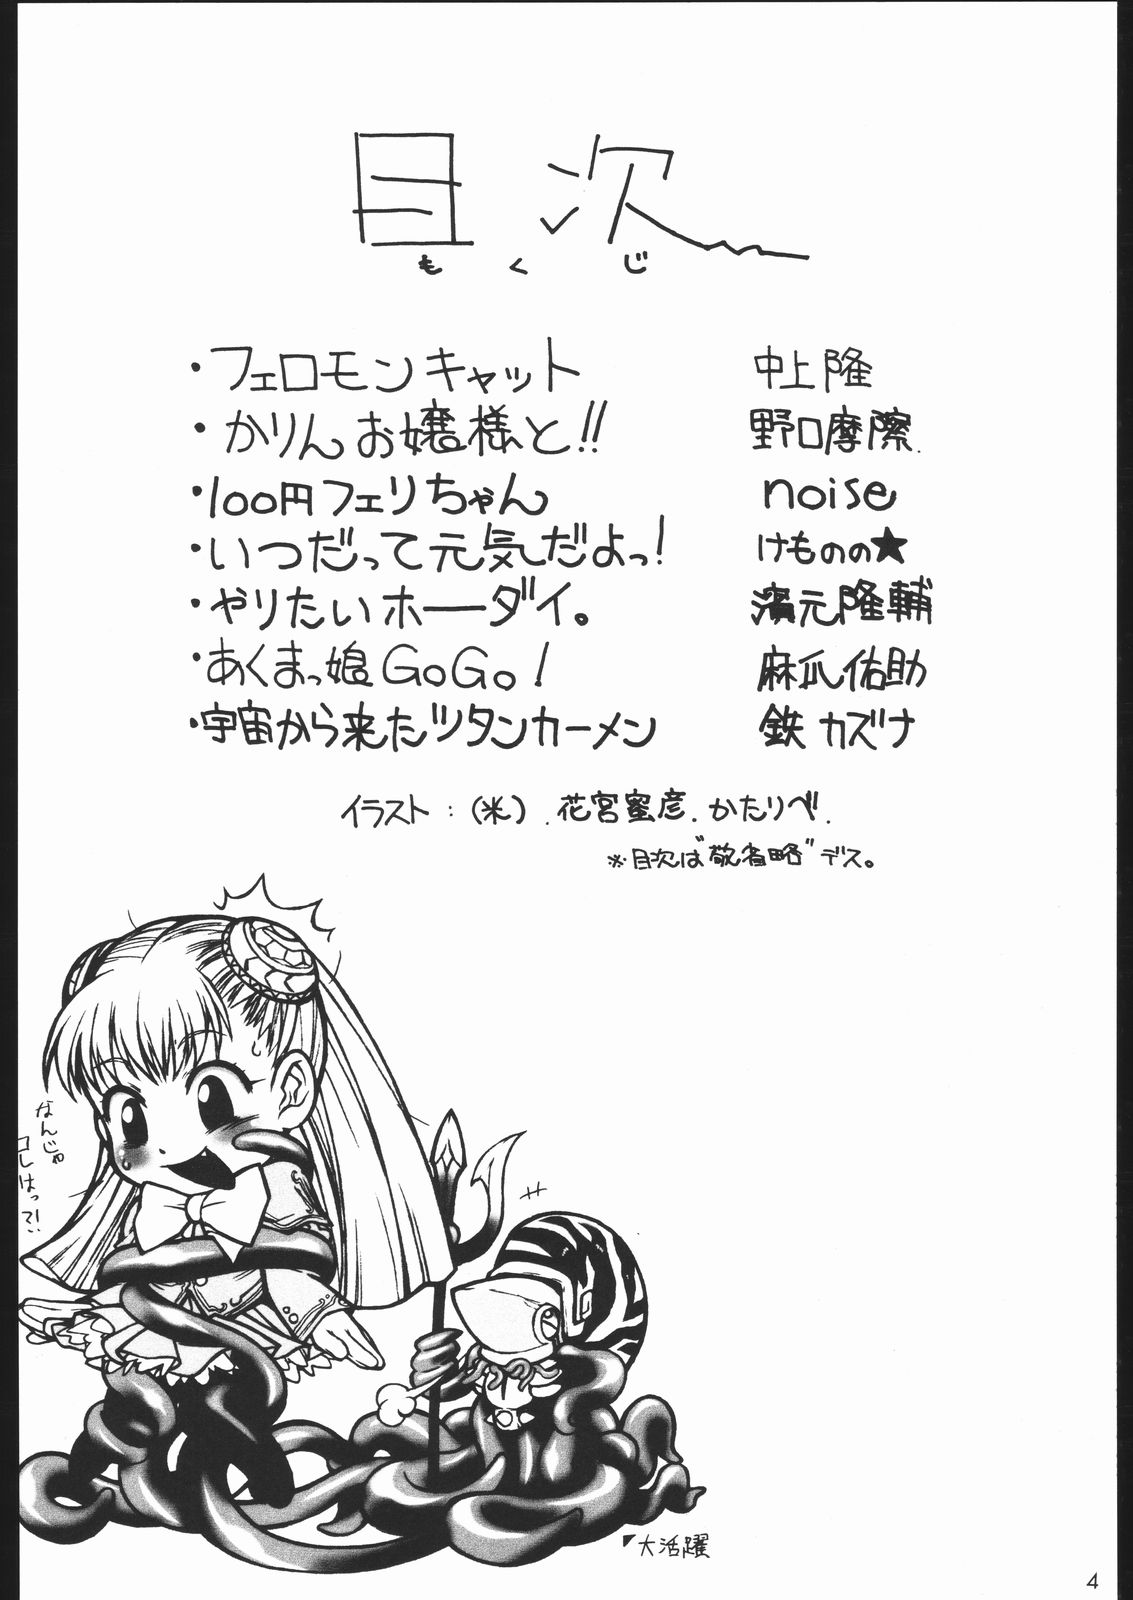 目次
もくじ
・フェロモンキャット 中上隆
・かりんお嬢様と!! 野口摩擦.
・100円フェリちゃん noise
・いつだって元気だよっ! けものの★
・やりたいホーダイ。 濱元隆輔
・あくまっ娘GoGo! 麻爪佑助
・宇宙から来たツタンカーメン 鉄カズナ
イラスト:(米).花宮蜜彦.かたりべ.
※目次は"敬省略"デス。
なんじゃ
コしはって!
大活躍
4